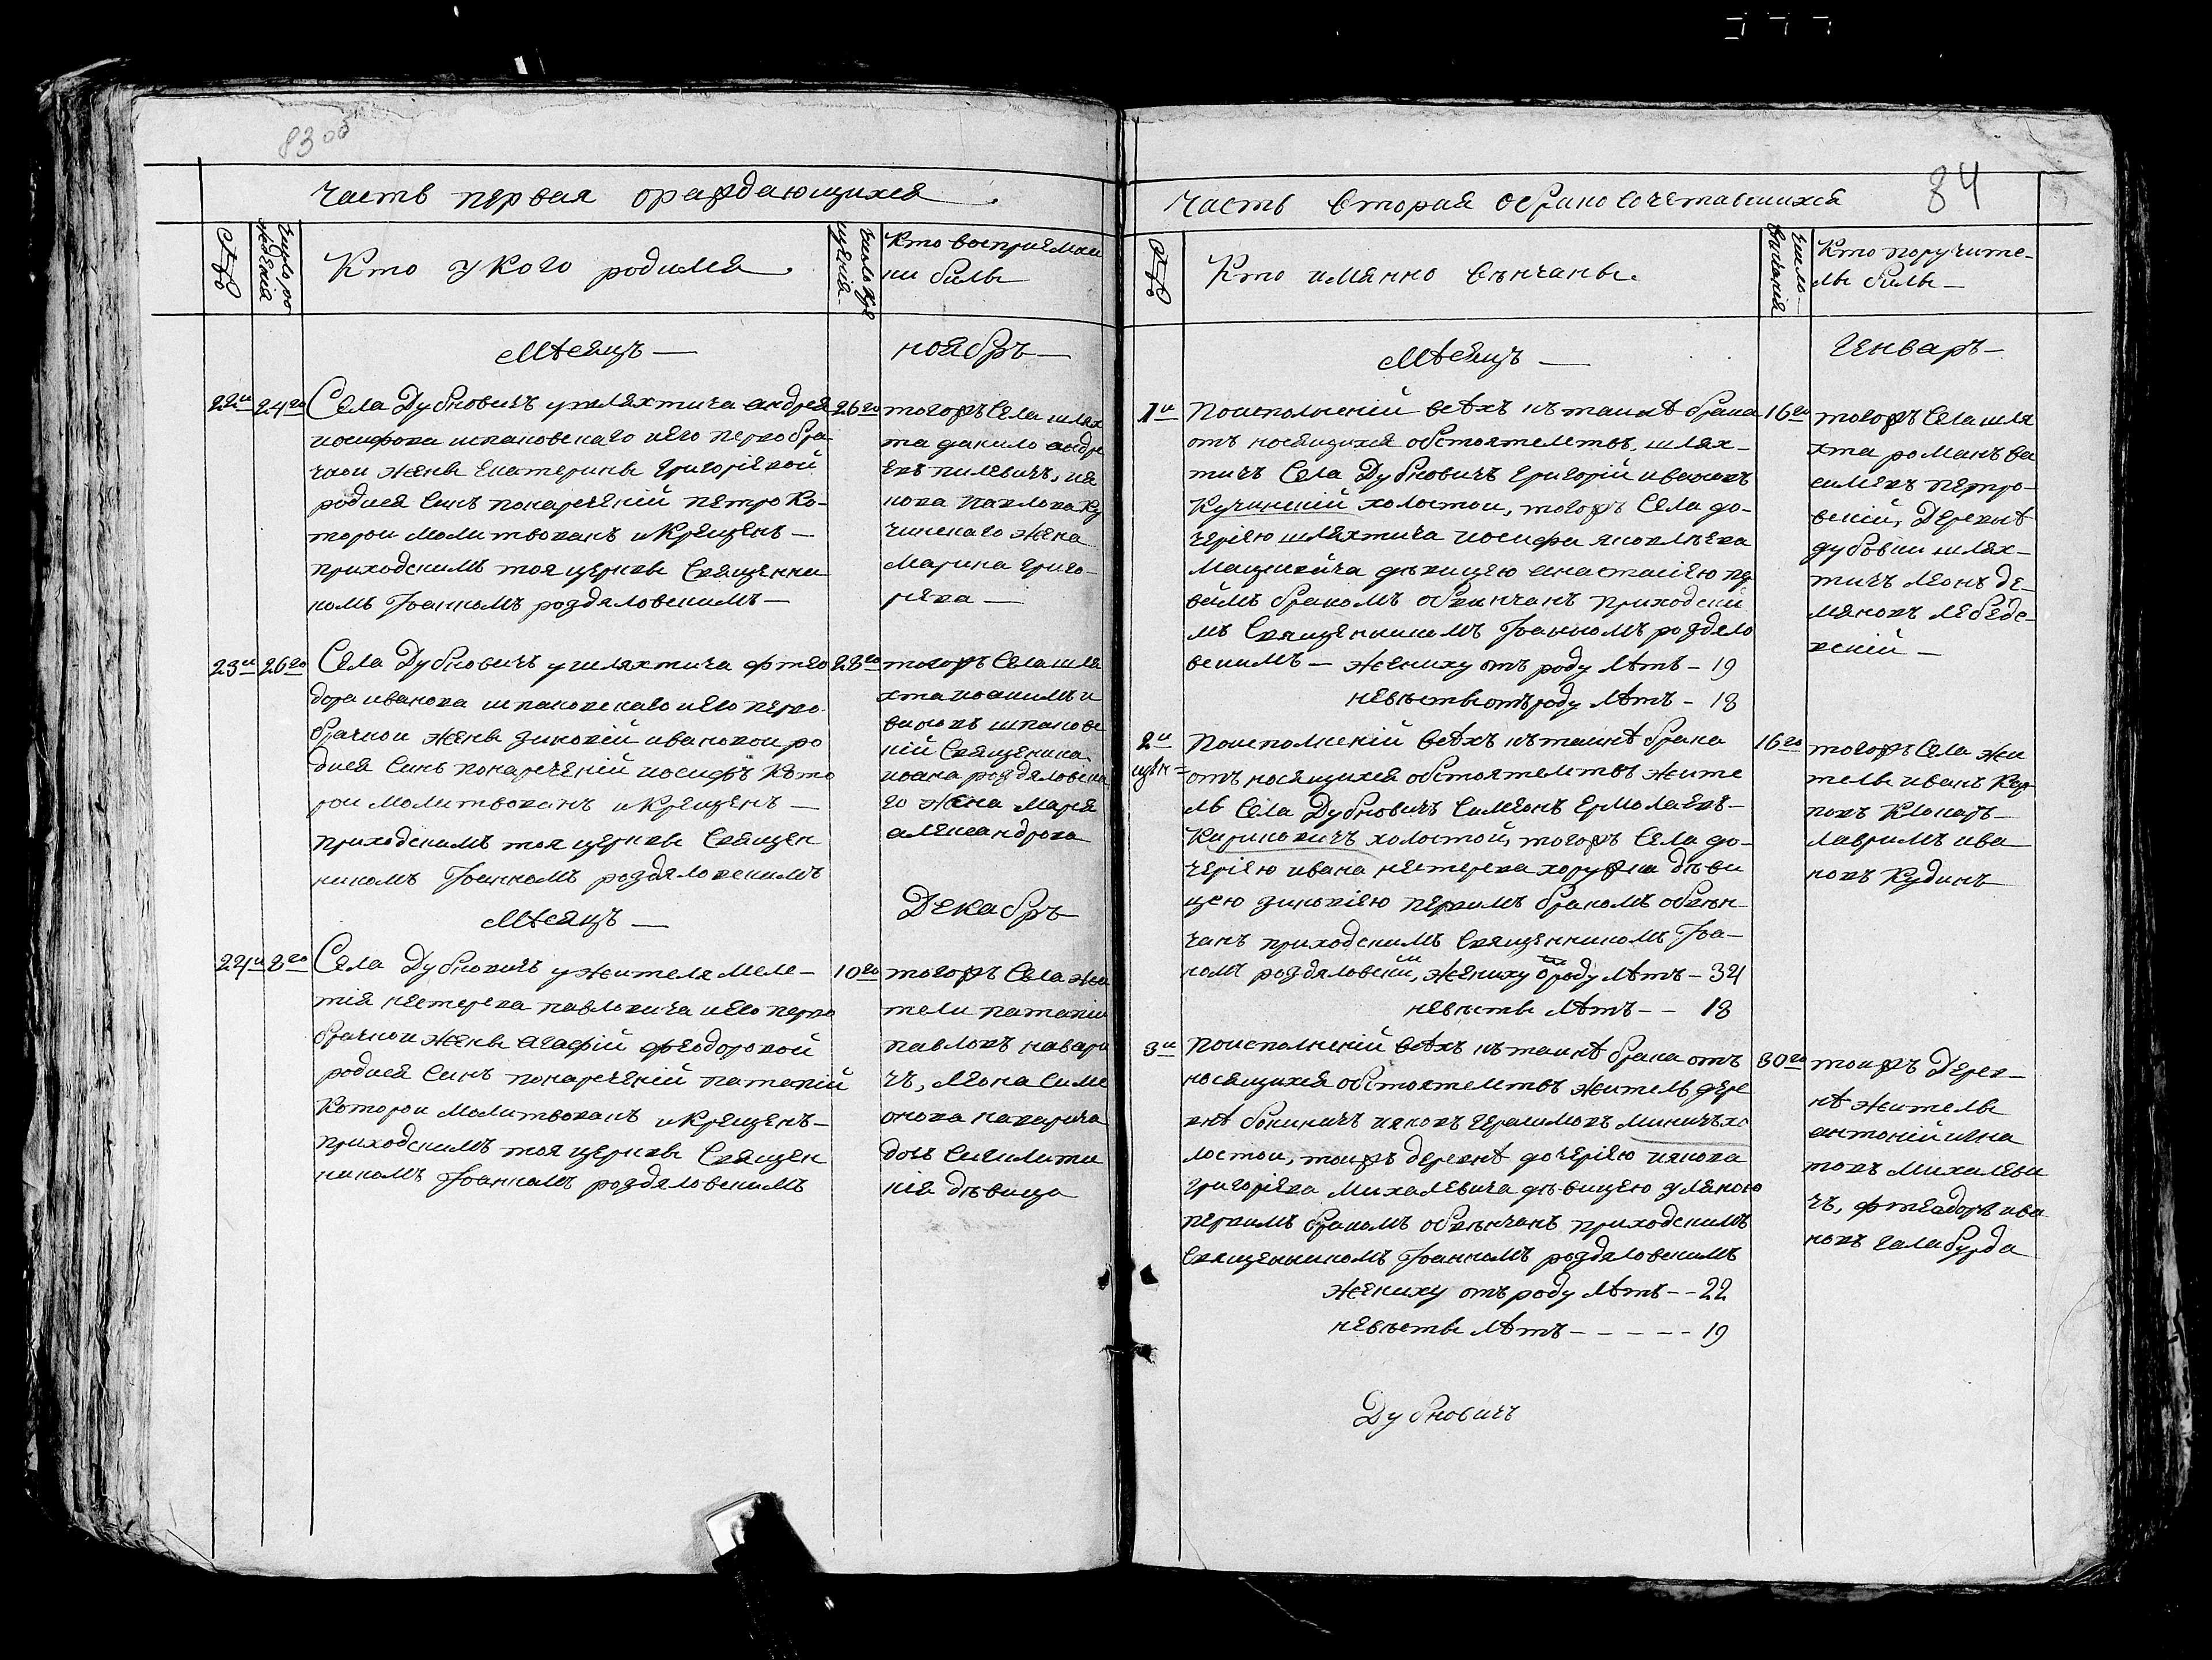 83 об
часть первая ораждающихся
число рождения
Кто укого родился
число крещения
Кто восприемники были
Мѣсяцъ — ноябрь —
22и 24го Села Дубновичъ ушляхтича андрея
иосифова шпаковскаго иего первобра
чной жены Екатерины григорiевой
родися Синъ понаречений петро Ко-
торои молитвованъ иКрещенъ —
приходскимъ тоя церкви Священни
комъ Iоанномъ роздяловскимъ —
26го тогожъ Села шлях
та данило андре
евъ пилевичъ, ия
кова павлова Ку
чинскаго жена
Марина григо-
рева —
23и 26го Села Дубновичъ ушляхтича фтео
дора иванова шпаковскаго иего перво
брачнои жены зиновiй ивановои ро
дися Синъ понаречений иосифъ Кото
рои молитвованъ иКрещенъ —
приходскимъ тоя церкви Священ
никомъ Iоанномъ роздяловскимъ
28го тогожъ Села шля
хта иоакимъ и
вановъ шпаковс
кiй Священика
иоана роздяловска
го жена Марiя
александрова
Мѣсяцъ — Декабрь
24и 8го Села Дубновичъ ужителя меле-
тiя нестерева павловича иего перво
брачнои жены агафiй феодоровой
родися Синъ понаречений патапiй
Которои молитвованъ иКрещенъ —
приходскимъ тоя церкви Священ
никомъ Iоанномъ роздяловскимъ
10го тогожъ Села жи
тели патапiй
павловъ навари
чъ, леона Симе
онова наварича
дочь
девица
84
часть вторая обракосочетавшихся
Кто имянно вѣнчаны
число вѣнчания
Кто поручите-
лы былы —
Мѣсяцъ — Генварь —
1и Поисполненiй всѣхъ къ таинѣ брака
отъ носящихся обстоятелствъ, шлях-
тичъ Села Дубновичъ григорiй ивановъ
Кучинскiй холостои, тогожъ Села до-
черiею шляхтича иосифа яковлева
Мацкевича дѣвицею анастасiею пер
вимъ бракомъ обвѣнчанъ приходски
мъ Священникомъ Iоанномъ роздело
вскимъ — жениху отъ роду лѣтъ — 19
невѣсты отъ роду лѣтъ — 18
16го тогожъ Села шля
хта романъ ва
силевъ петро-
вскiй, Деревнѣ
дубовки шлях-
тичъ леонъ де-
мяновъ лебеде-
вскiй —
2и Поисполненiй всѣхъ къ таинѣ брака
отъ носящихся обстоятелствъ жите
ль Села Дубновичъ Симеонъ Ермолаевъ —
Кириковичъ холостой, тогожъ Села до-
черiею ивана нестерева хоружа дѣви
цею зиновiею первимъ бракомъ обвѣн-
чанъ приходскимъ Священникомъ Iоа-
номъ роздяловским, жениху от роду лѣтъ — 34
невѣсты лѣтъ — — 18
16го тогожъ Села жи
тели иванъ Кар
повъ Клокатъ —
лавримъ ива
новъ Кудинъ
3и Поисполненiй всѣхъ къ таинѣ брака отъ
носящихся обстоятелствъ житель дере
внѣ бокиничъ ияковъ герасимовъ миничъ хо
лостои, тоижъ деревнѣ дочерiею иякова
григорiева михалевича дѣвицею улянною
первимъ бракомъ обвѣнчанъ приходскимъ
Священникомъ Iоанномъ роздяловскимъ
жениху отъ роду лѣтъ — — 22
невѣсты лѣтъ — — — — — 19
30го тоижъ Дерев-
нѣ жители
антонiй игна
товъ михалеви
чъ, фтеадоръ ива
новъ галабурда
Дубновичъ